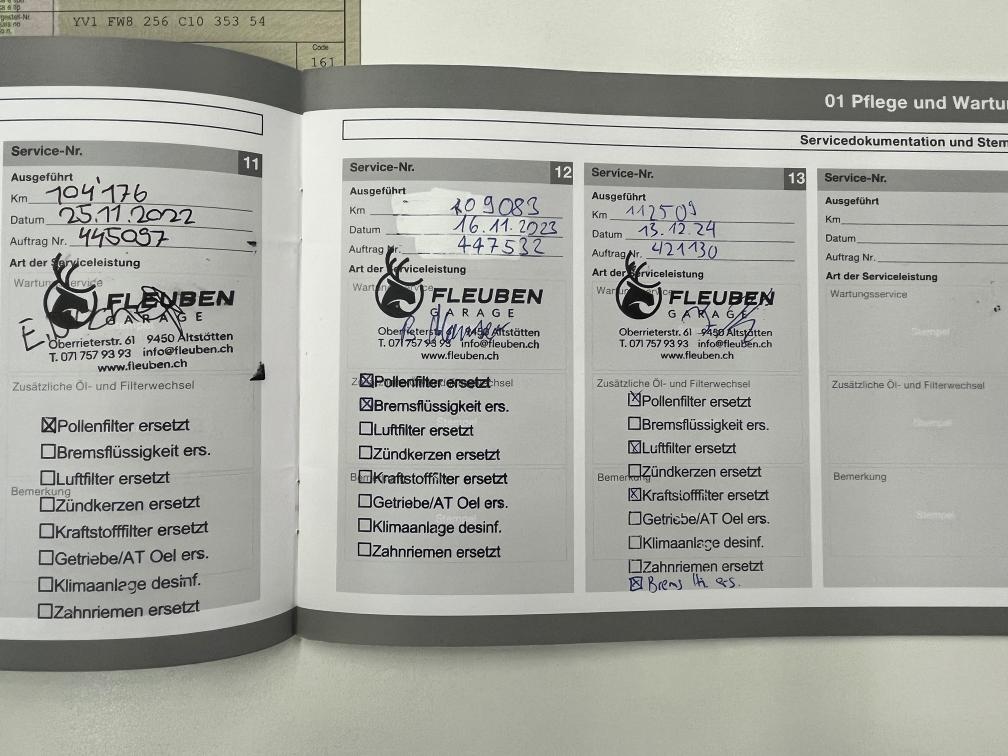 YV1 FW8 256 C10 353 54
Code
161
01 Pflege und Wartu
Servicedokumentation und Stem
Service-Nr. 11
Ausgeführt
Km 104'176
Datum 25.11.2022
Auftrag Nr. 445097
Art der Serviceleistung
Wartungsservice
FLEUBEN
GARAGE
Oberrieterstr. 61 9450 Altstätten
T. 071 757 93 93 info@fleuben.ch
www.fleuben.ch
Zusätzliche Öl- und Filterwechsel
Pollenfilter ersetzt
Bremsflüssigkeit ers.
Luftfilter ersetzt
Bemerkung
Zündkerzen ersetzt
Kraftstofffilter ersetzt
Getriebe/AT Oel ers.
Klimaanlage desinf.
Zahnriemen ersetzt
Service-Nr. 12
Ausgeführt
Km 109083
Datum 16.11.2023
Auftrag Nr. 447532
Art der Serviceleistung
FLEUBEN
GARAGE
Oberrieterstr. 61 9450 Altstätten
T. 071 757 93 93 info@fleuben.ch
www.fleuben.ch
Pollenfilter ersetzt
Bremsflüssigkeit ers.
Luftfilter ersetzt
Zündkerzen ersetzt
Kraftstofffilter ersetzt
Getriebe/AT Oel ers.
Klimaanlage desinf.
Zahnriemen ersetzt
Service-Nr. 13
Ausgeführt
Km 112509
Datum 13.12.24
Auftrag Nr. 421130
Art der Serviceleistung
FLEUBEN
GARAGE
Oberrieterstr. 61 9450 Altstätten
T. 071 757 93 93 info@fleuben.ch
www.fleuben.ch
Zusätzliche Öl- und Filterwechsel
Pollenfilter ersetzt
Bremsflüssigkeit ers.
Luftfilter ersetzt
Zündkerzen ersetzt
Bemerkung
Kraftstofffilter ersetzt
Getriebe/AT Oel ers.
Klimaanlage desinf.
Zahnriemen ersetzt
Brems ers.
Service-Nr.
Ausgeführt
Km
Datum
Auftrag Nr.
Art der Serviceleistung
Wartungsservice
Stempel
Zusätzliche Öl- und Filterwechsel
Stempel
Bemerkung
Stempel